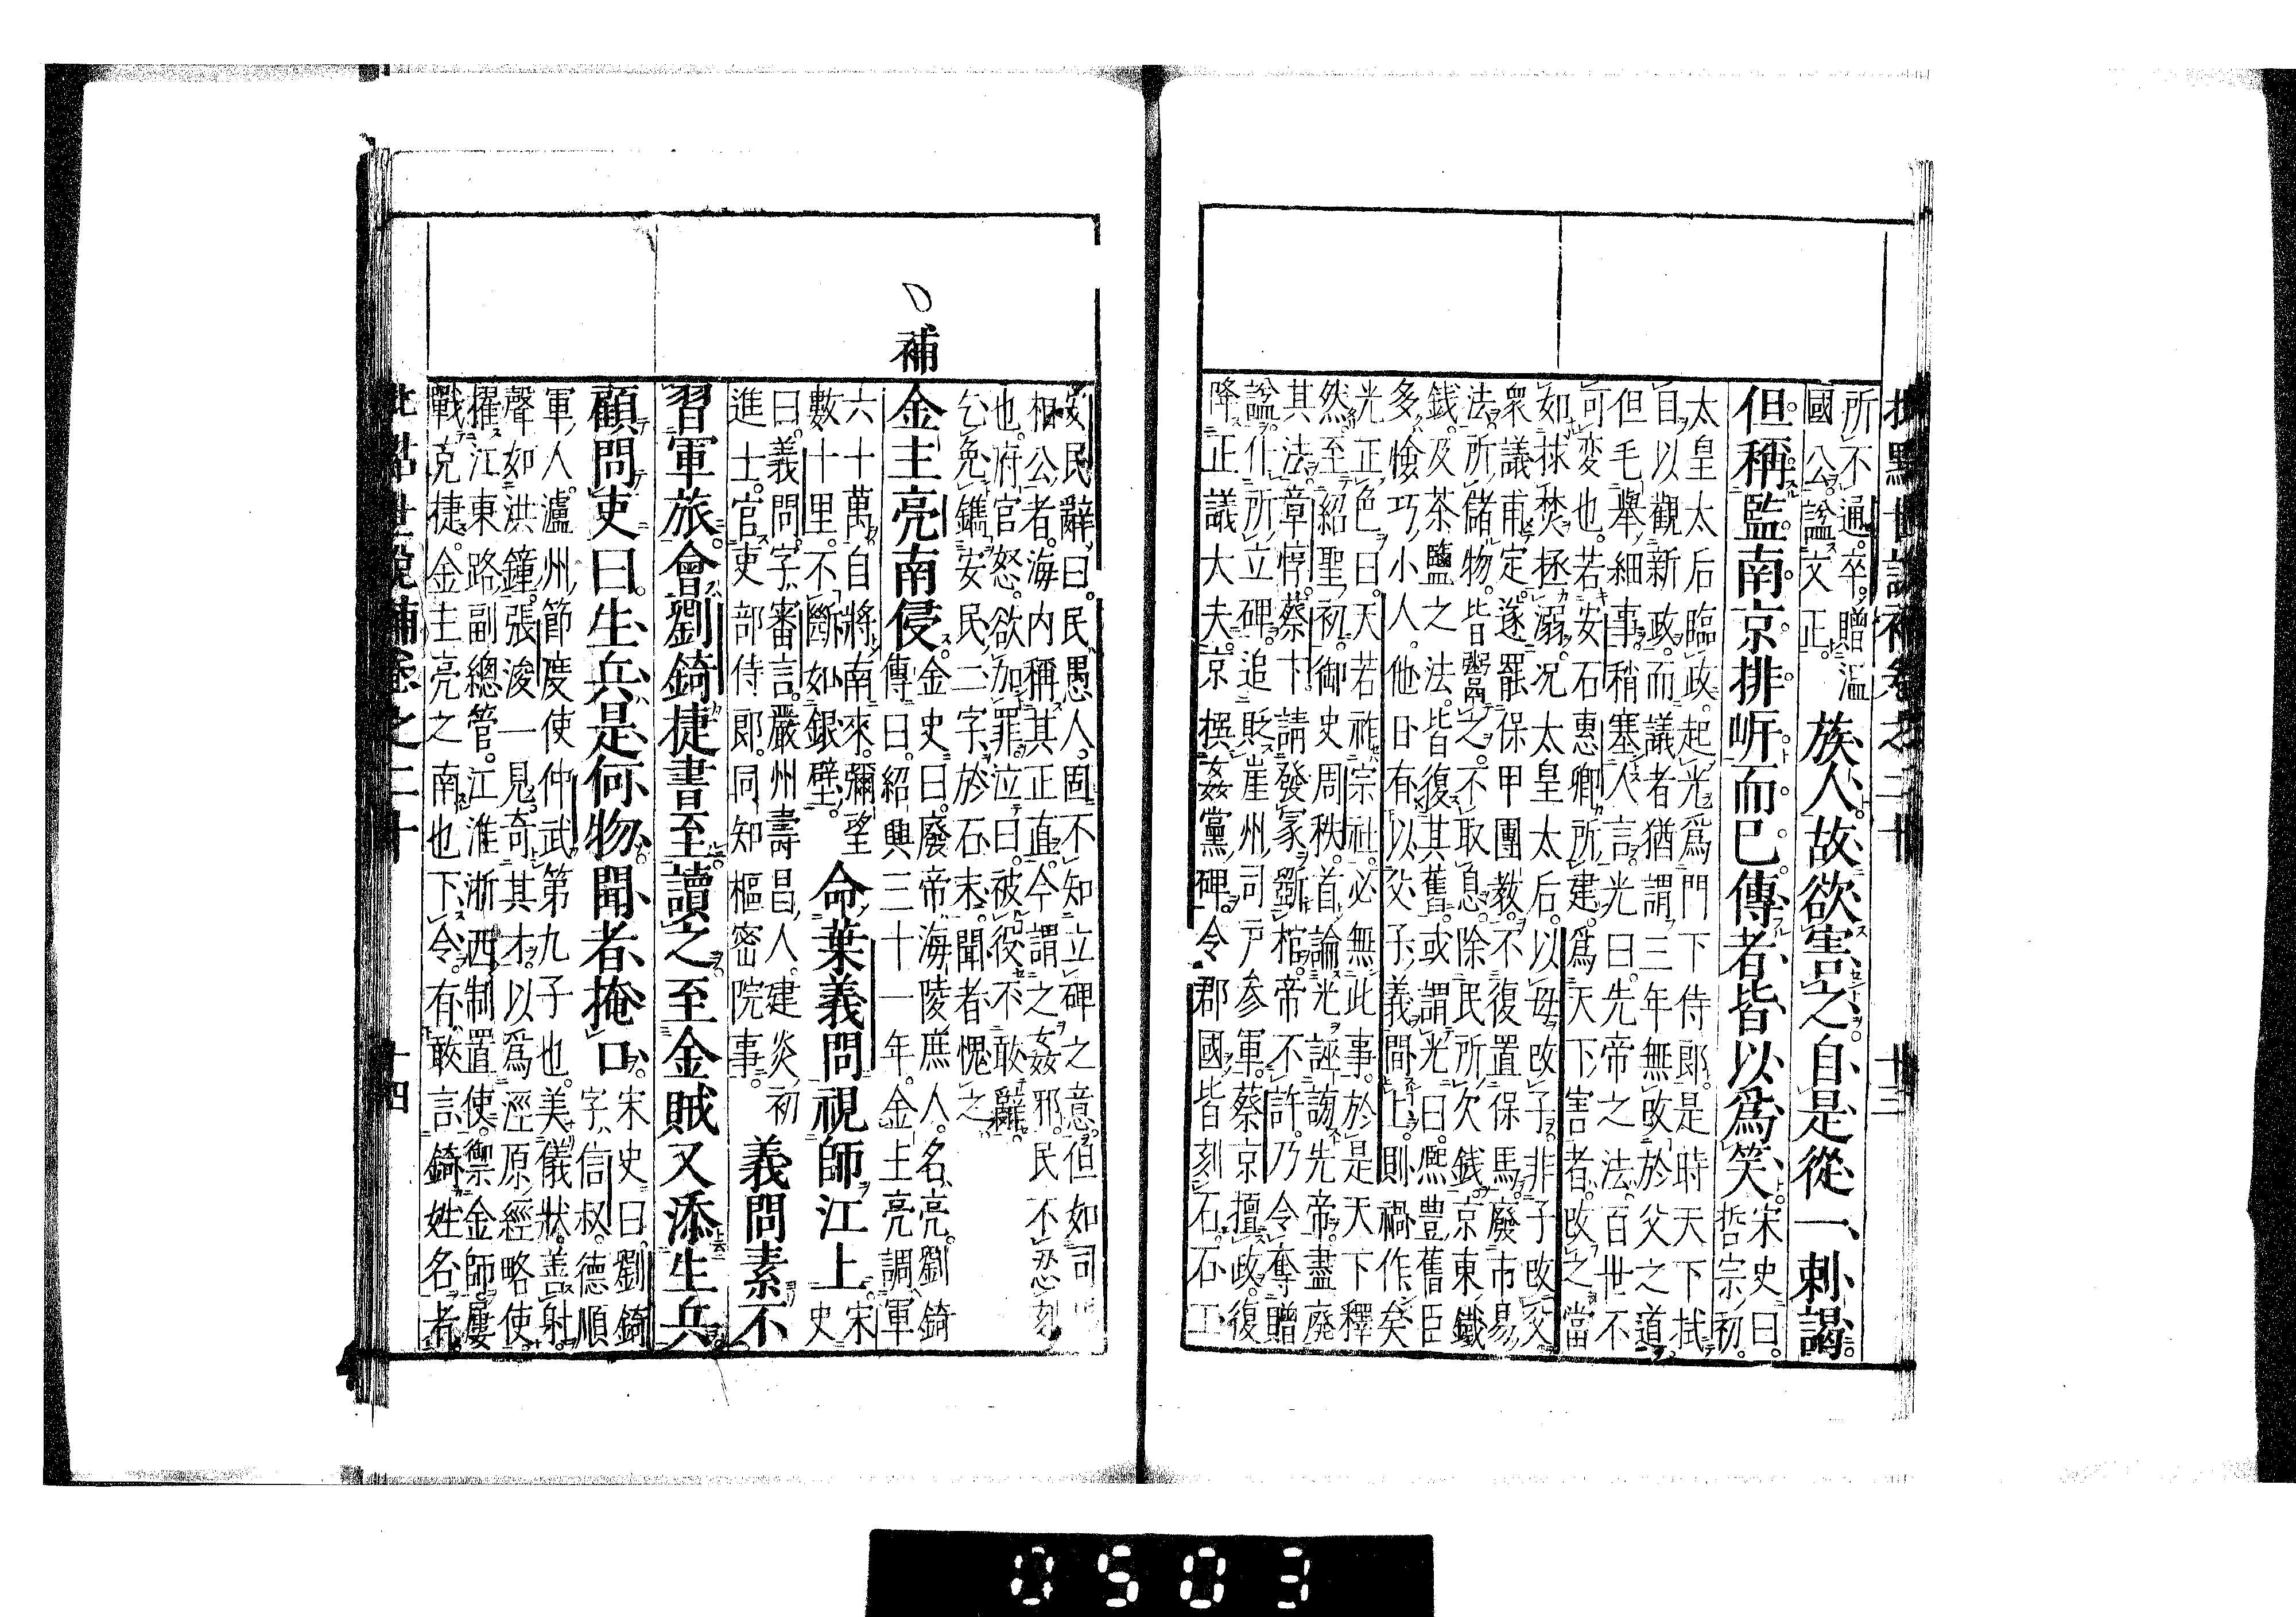 批點世説補卷之二十　十三
所不通卒贈溫
國公謚文正族人故欲害之自是從一剌謁
但稱監南京排岍而已傳者皆以爲笑宋史曰
哲宗初
太皇太后臨政起光爲門下侍郎是時天下拭
自以觀新政而議者猶謂三年無改於父之道
但毛舉細事稍塞人言光曰先帝之法百世不
可変也若安石惠卿所建爲天下害者改之當
如捄焚拯溺况太皇太后以母改子非子改父
衆議甫定遂罷保甲團教不復置保馬廢市易
法所儲物皆鬻之不取息除民所欠錢京東鐵
錢及茶鹽之法皆復其舊或謂光曰熙豐舊臣
多憸巧小人他日有以父子義問上則禍作矣
光正色曰天若祚宗社必無此事於是天下釋
然至紹聖初御史周秩首論光誣謗先帝盡廢
其法章惇蔡卞請發冢斵棺帝不許乃令奪贈
謚仆所立碑追貶崖州司戸参軍蔡京擅政復
降正議大夫京撰姦黨碑令郡國皆刻石石工
安民辭曰民愚人固不知立碑之意但如司馬
相公者海内稱其正直今謂之姦邪民不忍刻
也府官怒欲加罪泣曰被役不敢辭
乞免鐫安民二字於石末聞者愧之
補
金主亮南侵金史曰廢帝海陵庶人名亮劉錡
傳曰紹興三十一年金主亮調軍
六十萬自將南來彌望
數十里不斷如銀壁命葉義問視師江上宋史
曰義問字審言嚴州壽昌人建炎初
進士官吏部侍郎同知樞密院事義問素不
習軍旅會劉錡捷書至讀之至金賊又添生兵
顧問吏曰生兵是何物聞者掩口宋史曰劉錡
字信叔德順
軍人瀘州節度使仲武第九子也美儀狀善射
聲如洪鐘張浚一見奇其才以爲涇原經略使
擢江東路副總管江淮浙西制置使禦金師屢
戰克捷金主亮之南也下令有敢言錡姓名者
批點世說補卷之二十　十四
0503